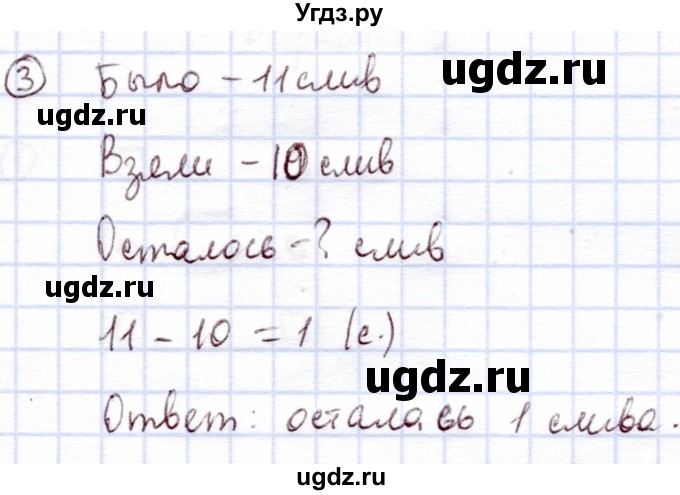 Угдз.ру
③ Было - 11 слив
ugdz.ru
ugdz.ru
Взяли - 10 слив
ugdz.ru
Осталось - ? слив
ugdz.ru
11 - 10 = 1 (с.)
ugdz.ru
Ответ: осталась 1 слива.
ugdz.ru
ugdz.ru